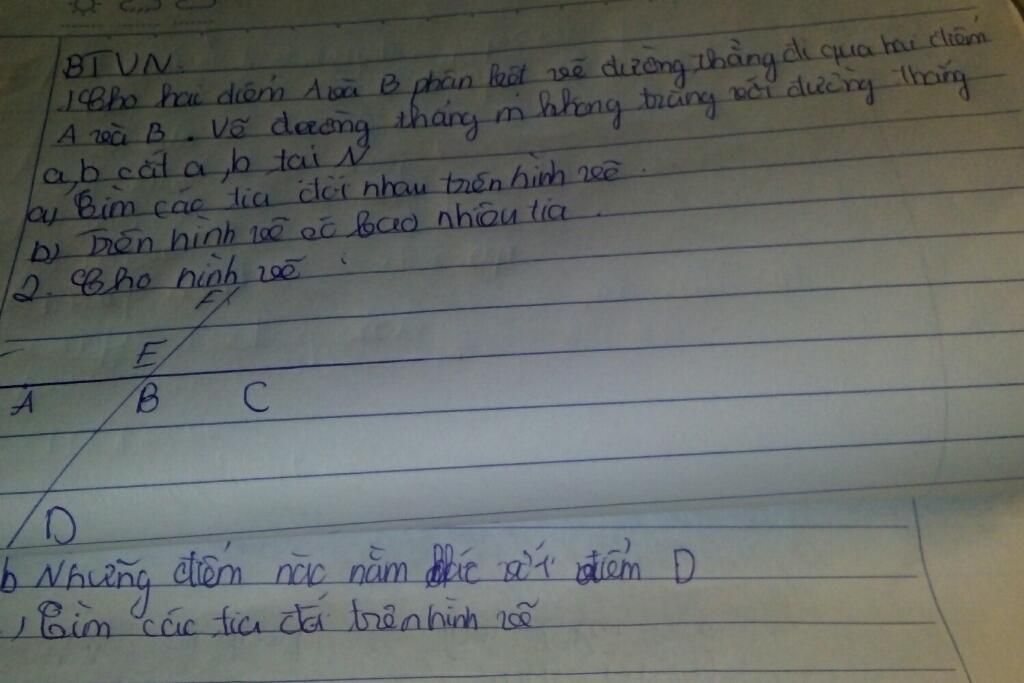 BTVN.
1 Cho hai điểm A và B phân biệt vẽ đường thẳng đi qua hai điểm
A và B. Vẽ đường thẳng m không trùng với đường thẳng
a, b cắt a, b tại N
a) Tìm các tia đối nhau trên hình vẽ.
b) Trên hình vẽ có bao nhiêu tia.
2. Cho hình vẽ
F
E
A B C
D
b Những điểm nào nằm với điểm D
) Tìm các tia trên hình vẽ